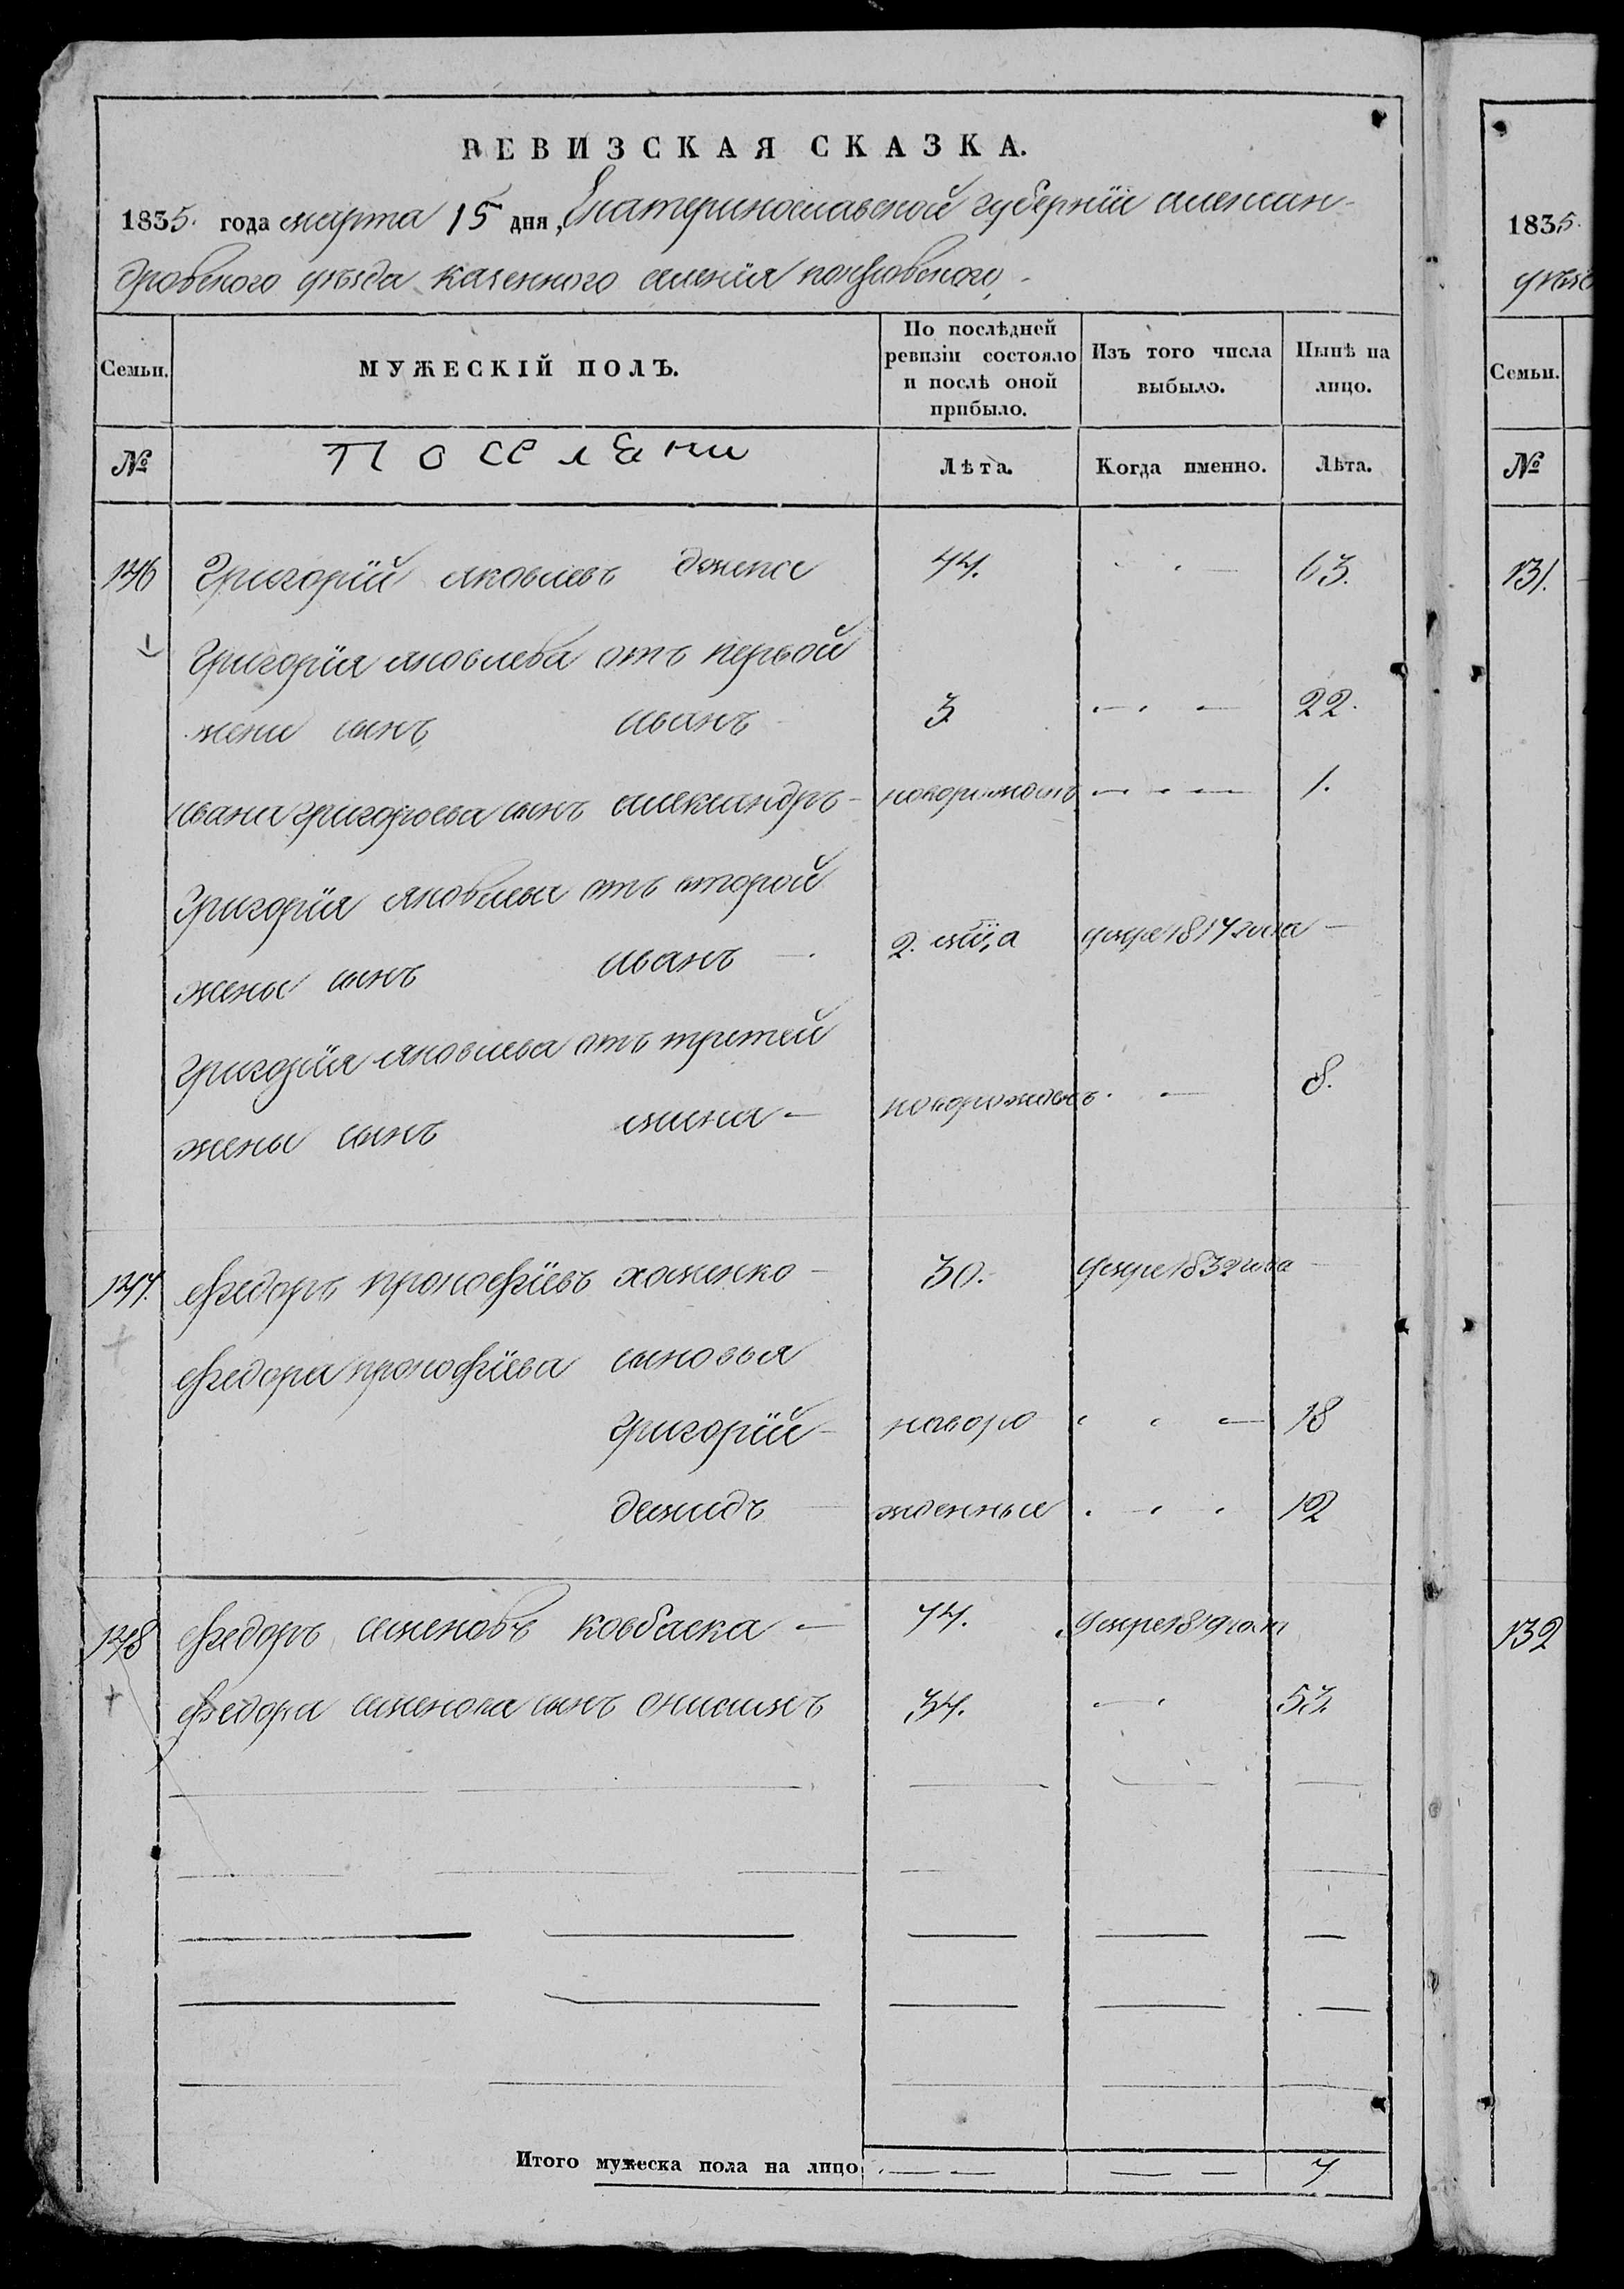 РЕВИЗСКАЯ СКАЗКА.
1835. года марта 15 дня, Екатеринославской губернїи алексан-
дровского уезда казенного селенїя
Семьи. МУЖЕСКІЙ ПОЛЪ. По послѣдней ревизіи состояло и послѣ оной прибыло. Изъ того числа выбыло. Нынѣ на лицо.
№ Поселяни Лѣта. Когда именно. Лѣта.
Григорїй яковлевъ 44. 63.
Григорїя яковлева отъ первой
жени сынъ иванъ 3 22.
ивана григорьева сынъ александръ - новорожденъ 1.
Григорїя яковлева отъ второй
жены сынъ иванъ 2. умре 1817 года
Григорїя яковлева отъ третей
жены сынъ мина - новорожденъ 8.
147. Федоръ прокофїевъ хоменко - 30. умре 1832 года
Федора прокофїева сыновья
григорїй новоро 18
демидъ жденные 12
148 Федоръ семеновъ ковбаска - 74. умре 1819 года
Федора семенова сынъ онисимъ 34. 53
Итого мужеска пола на лицо 7
1835.
уезд
Семьи.
№
131.
132